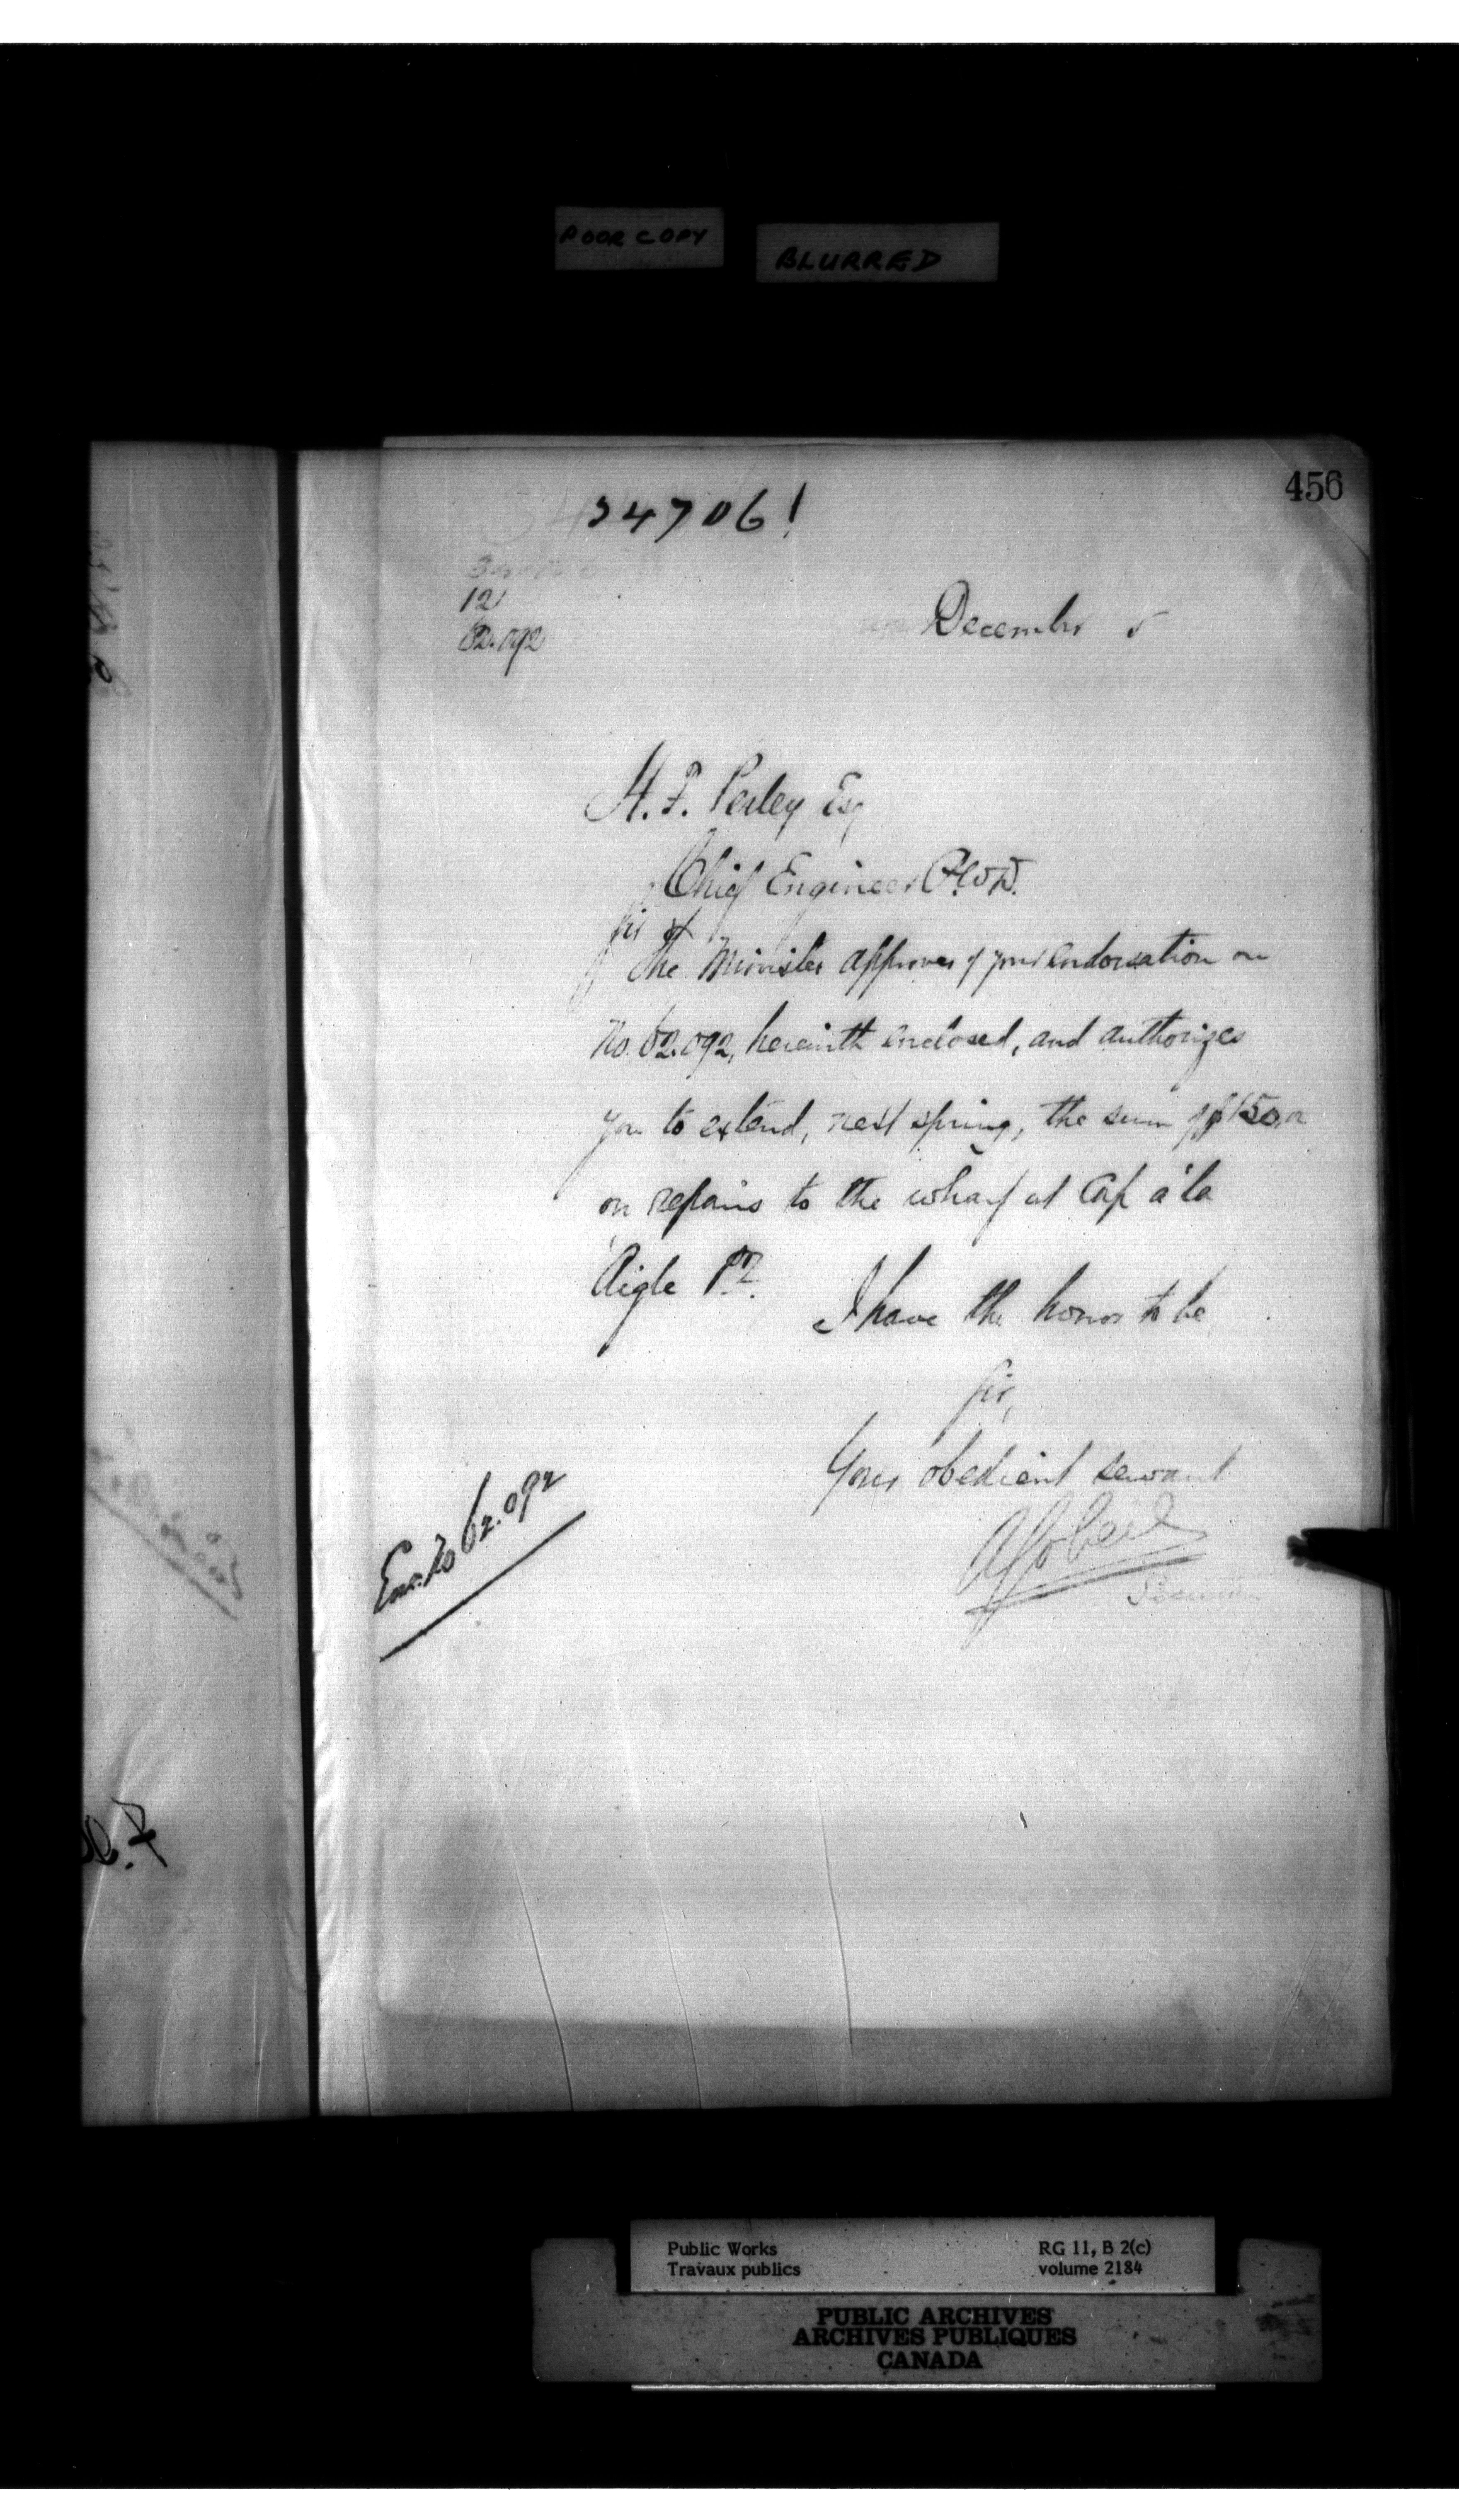 POOR COPY
BLURRED
456
34706!
12
62.092
December 5
H. F. Perley Esq
Chief Engineer P.W.D.
Sir
The Minister approves of your endorsation on
No. 62.092, herewith enclosed, and authorizes
you to extend, next spring, the sum of $150,
on repairs to the wharf at Cap à la
Aigle P.Q.
I have the honor to be
Sir,
Your obedient servant
A Gobeil
Secretary
Enc. No 62.092
Public Works
Travaux publics
RG 11, B 2(c)
volume 2184
PUBLIC ARCHIVES
ARCHIVES PUBLIQUES
CANADA